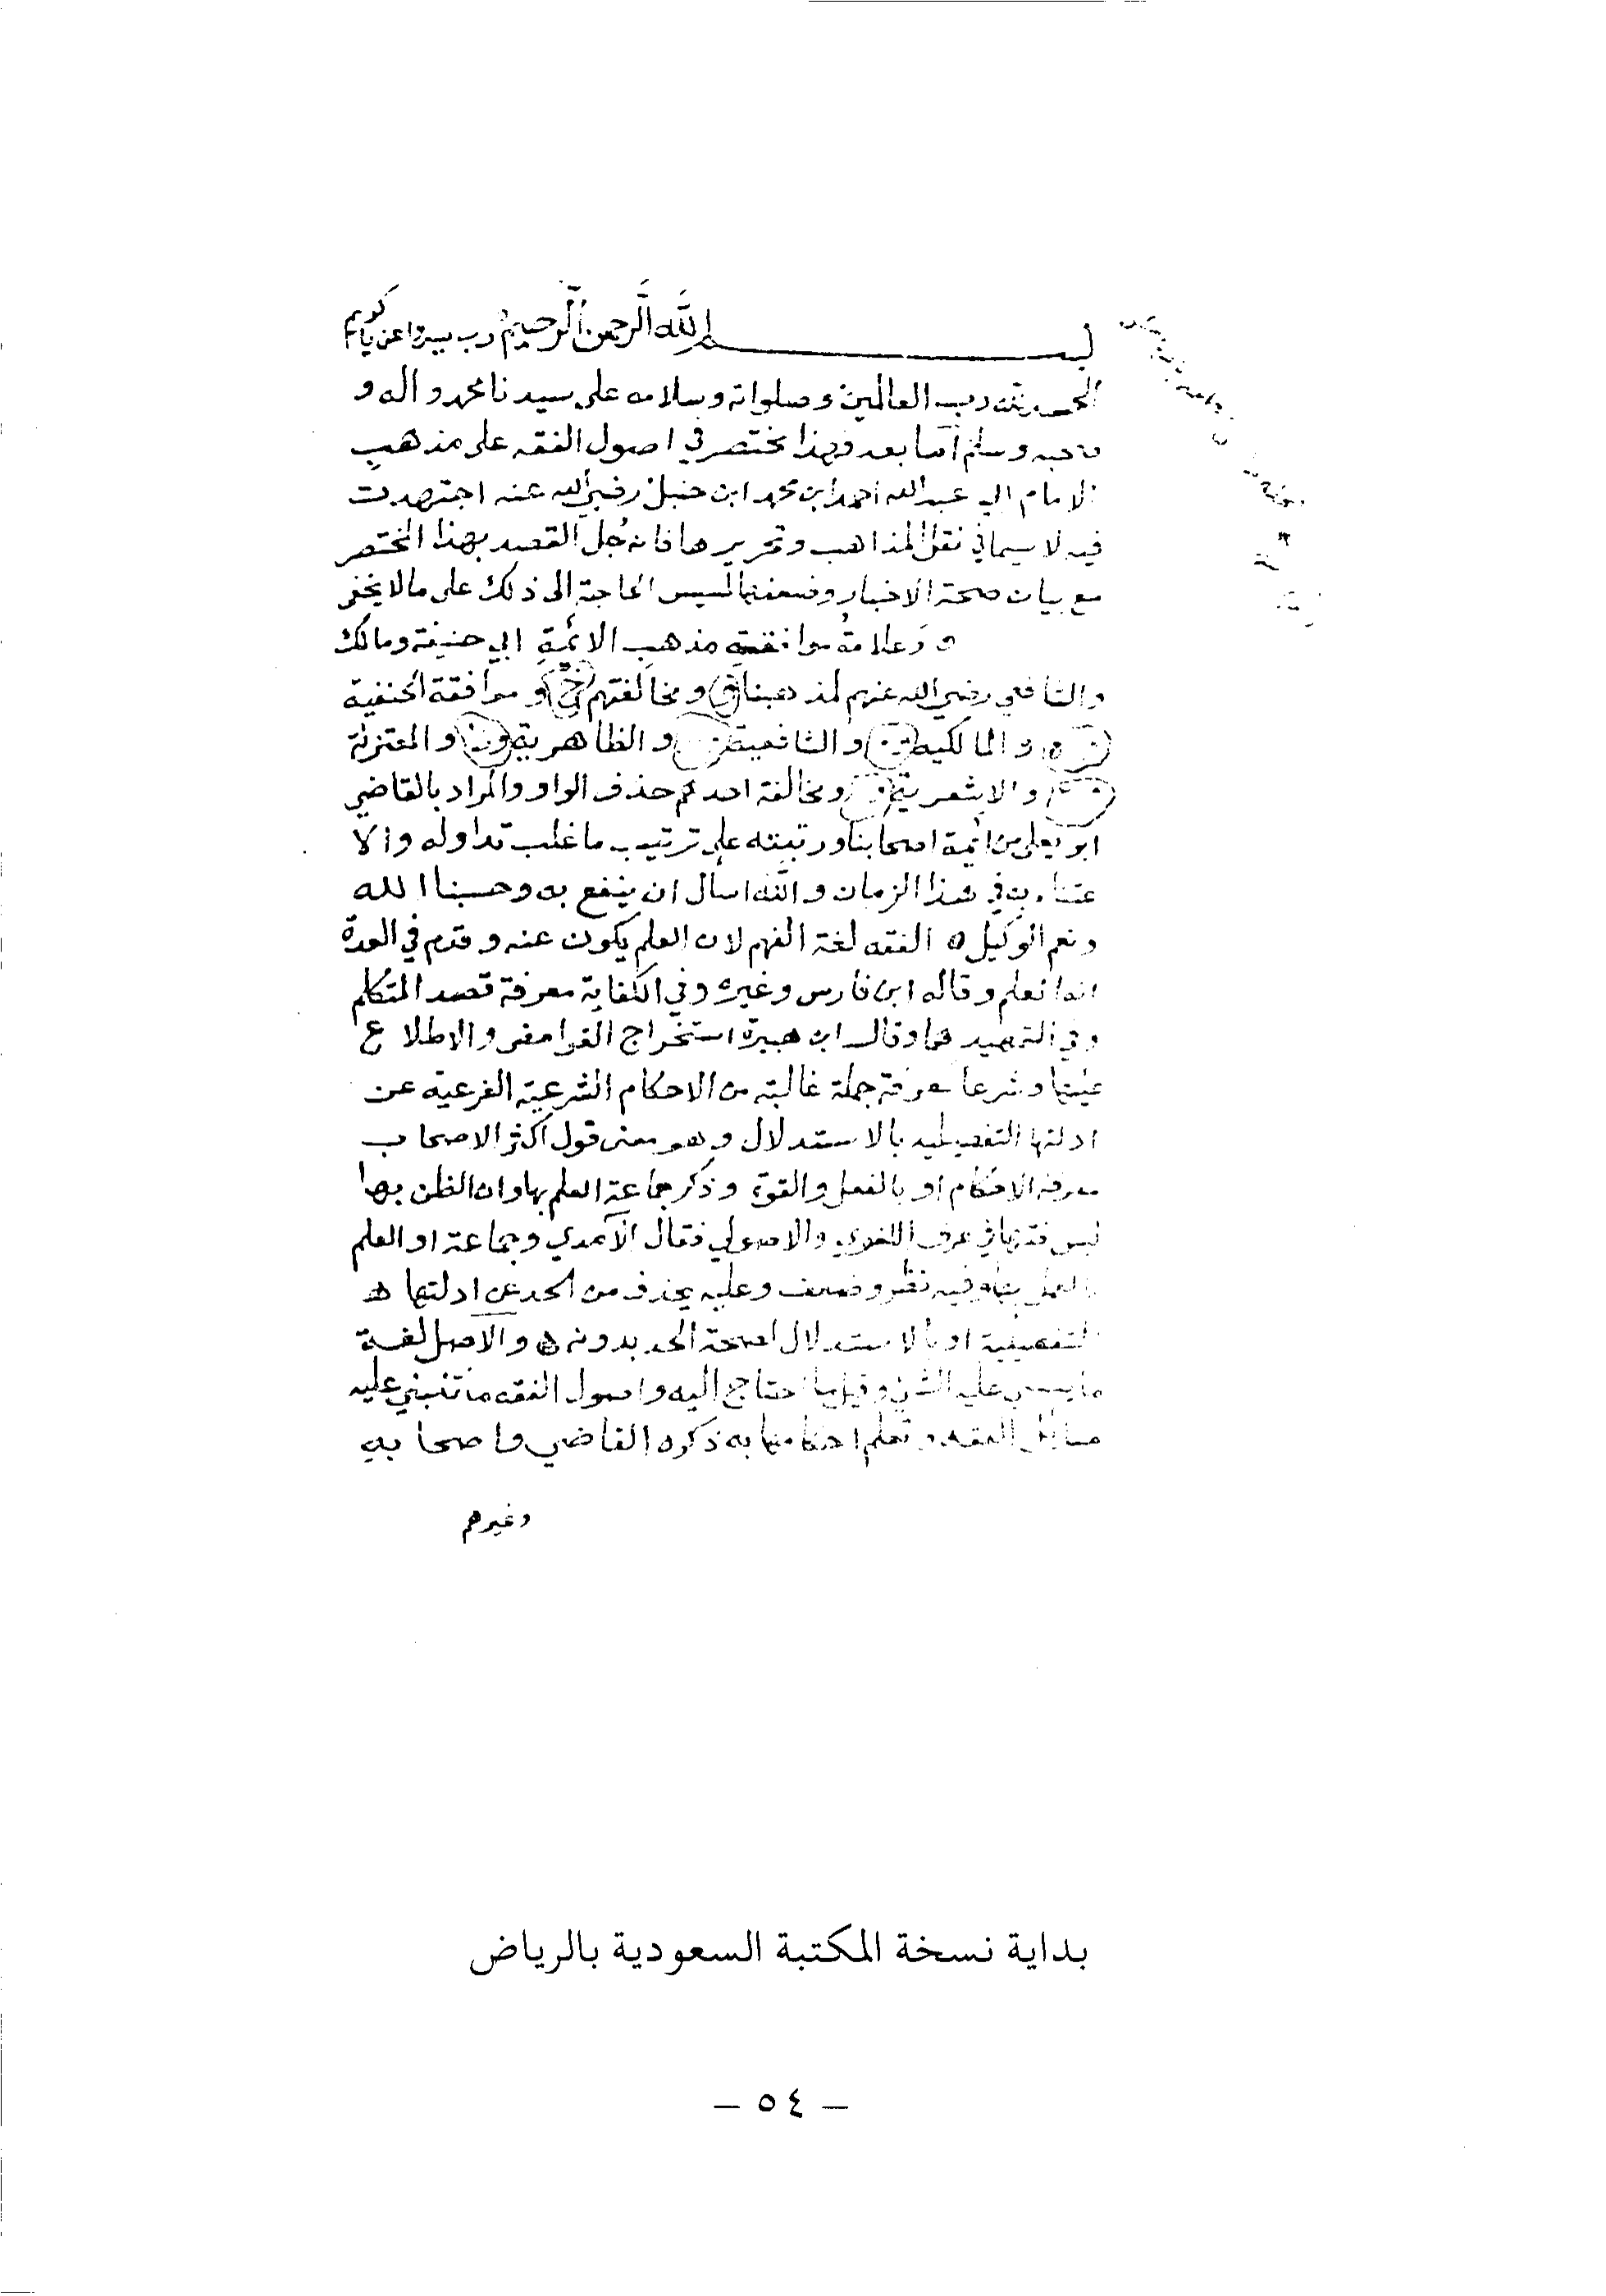 بسم الله الرحمن الرحيم رب يسر واعن يا كريم
الحمد لله رب العالمين وصلواته وسلامه على سيدنا محمد واله و
صحبه وسلم اما بعد فهذا مختصر في اصول الفقه على مذهب
الامام ابي عبد الله احمد ابن محمد ابن حنبل رضي الله عنه اجتهدت
فيه لا سيما في نقل المذاهب وتحريرها فانه جل القصد بهذا المختصر
مع بيان صحة الاخبار وضعفها لمسيس الحاجة الى ذلك على مالا يخفى
ه وعلامة موافقة مذهب الائمة ابي حنيفة ومالك
والشافعي رضي الله عنهم لمذهبنا (و) ومخالفتهم (خ) وموافقة الحنفية
والمالكية والشافعية والظاهرية والمعتزلة
والاشعرية ومخالفة احدهم حذف الواو والمراد بالقاضي
ابو يعلى من ائمة اصحابنا ورتبته على ترتيب ما غلب تداوله والا
عتناء به في هذا الزمان والله اسأل ان ينفع به وحسبنا الله
ونعم الوكيل ه الفقه لغة الفهم لان العلم يكون عنه وقدم في العدة
انه العلم وقاله ابن فارس وغيره وفي الكفاية معرفة قصد المتكلم
وفي التمهيد هما وقال ابن هبيرة استخراج الغوامض والاطلاع
عليها وشرعا معرفة جملة غالبة من الاحكام الشرعية الفرعية عن
ادلتها التفصيلية بالاستدلال وهو معنى قول اكثر الاصحاب
معرفة الاحكام او بالفعل والقوة وذكر جماعة العلم بها وان الظن بها
ليس فقها في عرف اللغوي والاصولي فقال الآمدي وجماعة او العلم
بالعمل بها وفيه نظر وضعف وعليه يحذف من الحد عن ادلتها ه
التفصيلية او بالاستدلال لصحة الحد بدونه ه والاصل لغة
ما يبنى عليه الشي وقيل ما احتاج اليه واصول الفقه ما تنبني عليه
مسائل الفقه وتعلم احكامها به ذكره القاضي واصحابه
وغيرهم
بداية نسخة المكتبة السعودية بالرياض
— ٥٤ —